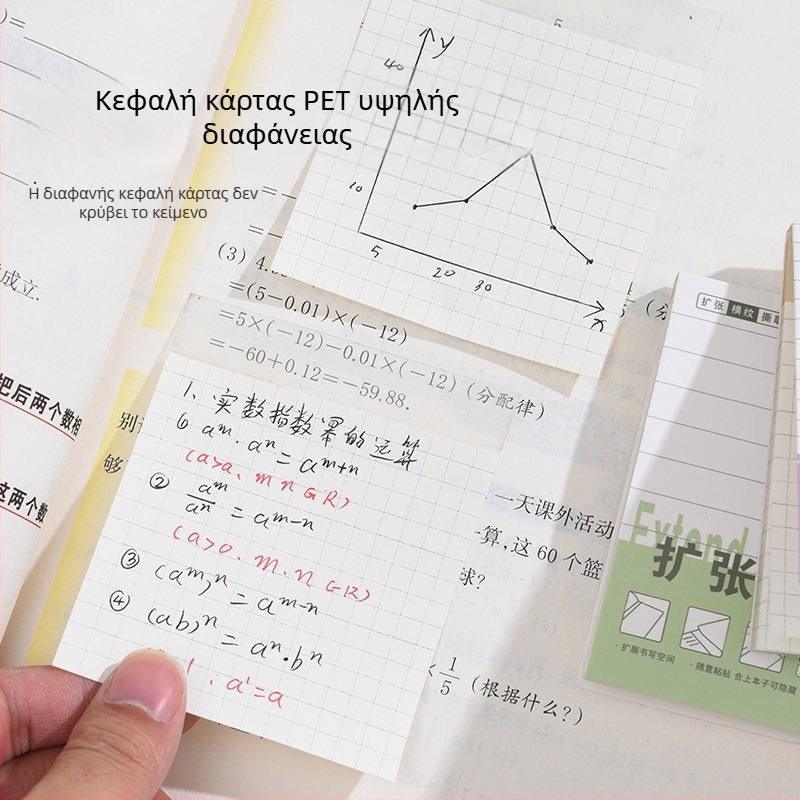 Κεφαλή κάρτας PET υψηλής
διαφάνειας
Η διαφανής κεφαλή κάρτας δεν
κρύβει το κείμενο
y
40
10
5
20
30
x
(3) 4.
=(5-0.01)×(-12)
=5×(-12)-0.01×(-12)(分配律)
=-60+0.12=-59.88.
成立.
把后两个数相
这两个数
别
够
1、实数指数幂的运算
① aᵐ·aⁿ=aᵐ⁺ⁿ
(a>a、m n∈R)
② aᵐ/aⁿ=aᵐ⁻ⁿ
(a>0、m、n∈R)
③ (aᵐ)ⁿ=aᵐ⁻ⁿ
④ (ab)ⁿ=aⁿ·bⁿ
1、a¹=a
一天课外活动
算,这60个篮
球?
1/5 (根据什么?)
扩张 横纹 撕取
Extend
扩张
·扩展书写空间
·随意粘贴
合上本子可隐藏